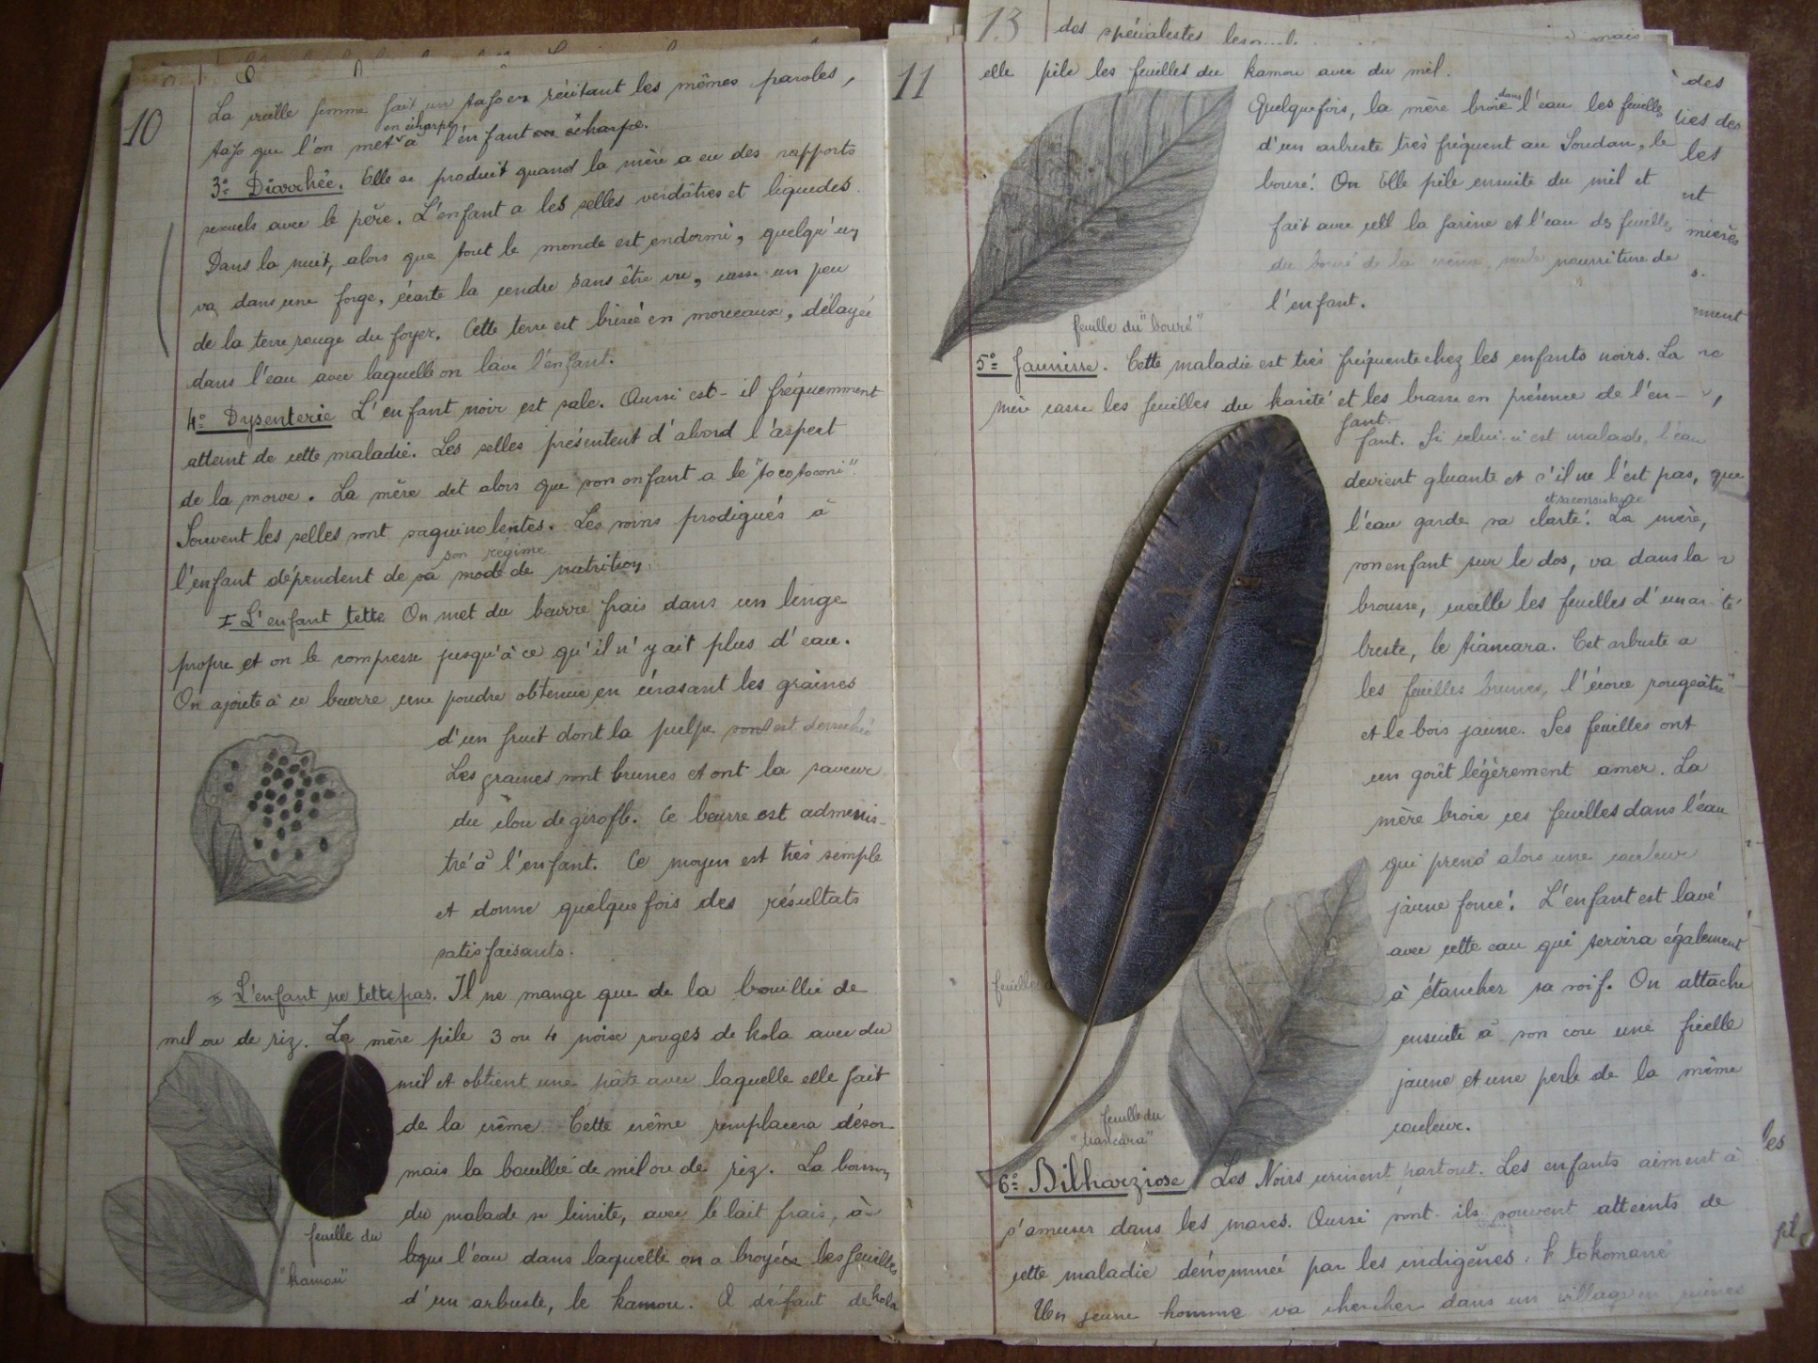 10
La vieille femme fait un tafo en récitant les mêmes paroles,
en écharpe
tafo que l'on met à l'enfant en écharpe.
3º Diarrhée. Elle se produit quand la mère a eu des rapports
sexuels avec le père. L'enfant a les selles verdâtres et liquides.
Dans la nuit, alors que tout le monde est endormi, quelqu'un
va dans une forge, écarte la cendre sans être vu, casse un peu
de la terre rouge du foyer. Cette terre est brisée en morceaux, délayée
dans l'eau avec laquelle on lave l'enfant.
4º Dysenterie L'enfant noir est sale. Aussi est-il fréquemment
atteint de cette maladie. Les selles présentent d'abord l'aspect
de la morve. La mère dit alors que son enfant a le "tocotoconi".
Souvent les selles sont saguinolentes. Les soins prodigués à
son régime
l'enfant dépendent de sa mode de nutrition.
I L'enfant tette On met du beurre frais dans un linge
propre et on le compresse jusqu'à ce qu'il n'y ait plus d'eau.
On ajoute à ce beurre une poudre obtenue en écrasant les graines
d'un fruit dont la pulpe
Les graines sont brunes et ont la saveur
du clou de girofle. Ce beurre est adminis-
tré à l'enfant. Ce moyen est très simple
et donne quelquefois des résultats
satisfaisants.
II L'enfant ne tette pas. Il ne mange que de la bouillie de
mil ou de riz. La mère pile 3 ou 4 noix rouges de kola avec du
mil et obtient une pâte avec laquelle elle fait
de la crème. Cette crème remplacera désor-
mais la bouillie de mil ou de riz. La boisson
du malade se limite, avec le lait frais, à
l'eau dans laquelle on a broyées les feuilles
d'un arbuste, le kamou. A défaut de kola
feuille du
"kamou"
13
des spécialistes
mais
11
elle pile les feuilles du kamou avec du mil.
dans
Quelquefois, la mère broie l'eau les feuilles
d'un arbuste très fréquent au Soudan, le
bouré. On Elle pile ensuite du mil et
fait avec la farine et l'eau des feuilles
du bouré de la crème, seule nourriture de
l'enfant.
feuille du "bouré"
5º Jaunisse. Cette maladie est très fréquente chez les enfants noirs. La
mère casse les feuilles du karité et les brasse en présence de l'en-
fant.
fant. Si celui-ci est malade, l'eau
devient gluante et s'il ne l'est pas, que
et sa consistance
l'eau garde sa clarté. La mère,
son enfant sur le dos, va dans la
brousse, cueille les feuilles d'un ar-
buste, le tiancara. Cet arbuste a
les feuilles brunes, l'écorce rougeâtre
et le bois jaune. Ses feuilles ont
un goût légèrement amer. La
mère broie ces feuilles dans l'eau
qui prend alors une couleur
jaune foncé. L'enfant est lavé
avec cette eau qui servira également
à étancher sa soif. On attache
ensuite à son cou une ficelle
jaune et une perle de la même
couleur.
feuille
feuille du
"tiancara"
6º Bilharziose Les Noirs urinent partout. Les enfants aiment à
s'amuser dans les mares. Aussi sont-ils souvent atteints de
cette maladie dénommée par les indigènes: le tokomané
Un jeune homme va chercher dans un village
des
les
les